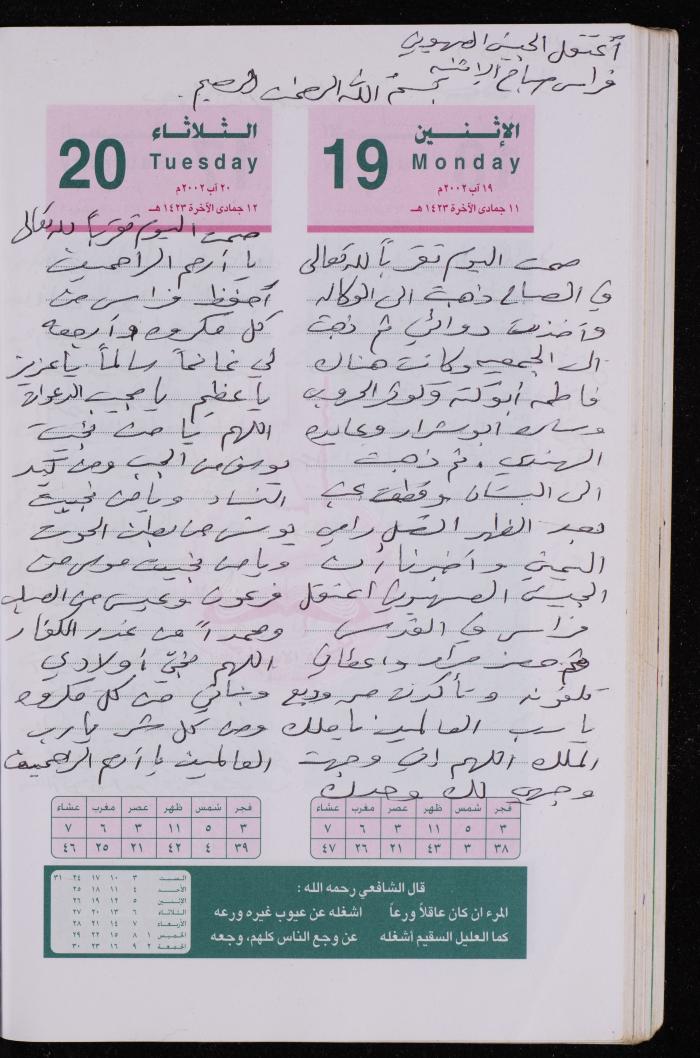 أعتقل الجيش الصهيوني
فراس صباح الإثنين
بسم الله الرحمن الرحيم
الإثنين
Monday
19
١٩ آب ٢٠٠٢م
١١ جمادى الآخرة ١٤٢٣ هـ
صمت اليوم تقرباً لله تعالى
في الصباح ذهبت الى الوكاله
وأخذت دوائي ثم ذهبت
الى الجمعيه وكانت هناك
فاطمه أبو كته وكوثر الحروب
وساره ابو شرار وعايده
الهندي . ثم ذهبت
الى البستان وقطفت عنب
بعد الظهر اتصل رامي
اليمني وأخبرنا أن
الجيش الصهيوني أعتقل
فراس في القدس
فتم حضر مراد واعطاني
تلفونه وتأكدت من وديع
يا رب العالمين يا ملك
الملك اللهم إني وجهت
وجهي لك وحدك
الثلاثاء
Tuesday
20
٢٠ آب ٢٠٠٢م
١٢ جمادى الآخرة ١٤٢٣ هـ
صمت اليوم تقرباً لله تعالى
يا أرحم الراحمين
أحفظ فراس من
كل مكروه وأرجعه
لي غانماً سالماً يا عزيز
يا عظيم يا مجيب الدعوات
اللهم يا من نجيت
يوسف من الجب ومن كيد
النساء ويا من نجيت
يونس من بطن الحوت
ويا من نجيت موسى من
فرعون وعيسى من الصلب
ومحمداً من غدر الكفار
اللهم نجي أولادي
وبناتي من كل مكروه
ومن كل شر يا رب
العالمين يا أرحم الراحمين
فجر شمس ظهر عصر مغرب عشاء
٣ ٥ ١١ ٣ ٦ ٧
٣٨ ٣ ٤٣ ٢١ ٢٦ ٤٧
فجر شمس ظهر عصر مغرب عشاء
٣ ٥ ١١ ٣ ٦ ٧
٣٩ ٤ ٤٢ ٢١ ٢٥ ٤٦
قال الشافعي رحمه الله :
المرء ان كان عاقلاً ورعاً اشغله عن عيوب غيره ورعه
كما العليل السقيم أشغله عن وجع الناس كلهم، وجعه
السبت ٣ ١٠ ١٧ ٢٤ ٣١
الأحد ٤ ١١ ١٨ ٢٥
الإثنين ٥ ١٢ ١٩ ٢٦
الثلاثاء ٦ ١٣ ٢٠ ٢٧
الأربعاء ٧ ١٤ ٢١ ٢٨
الخميس ١ ٨ ١٥ ٢٢ ٢٩
الجمعة ٢ ٩ ١٦ ٢٣ ٣٠